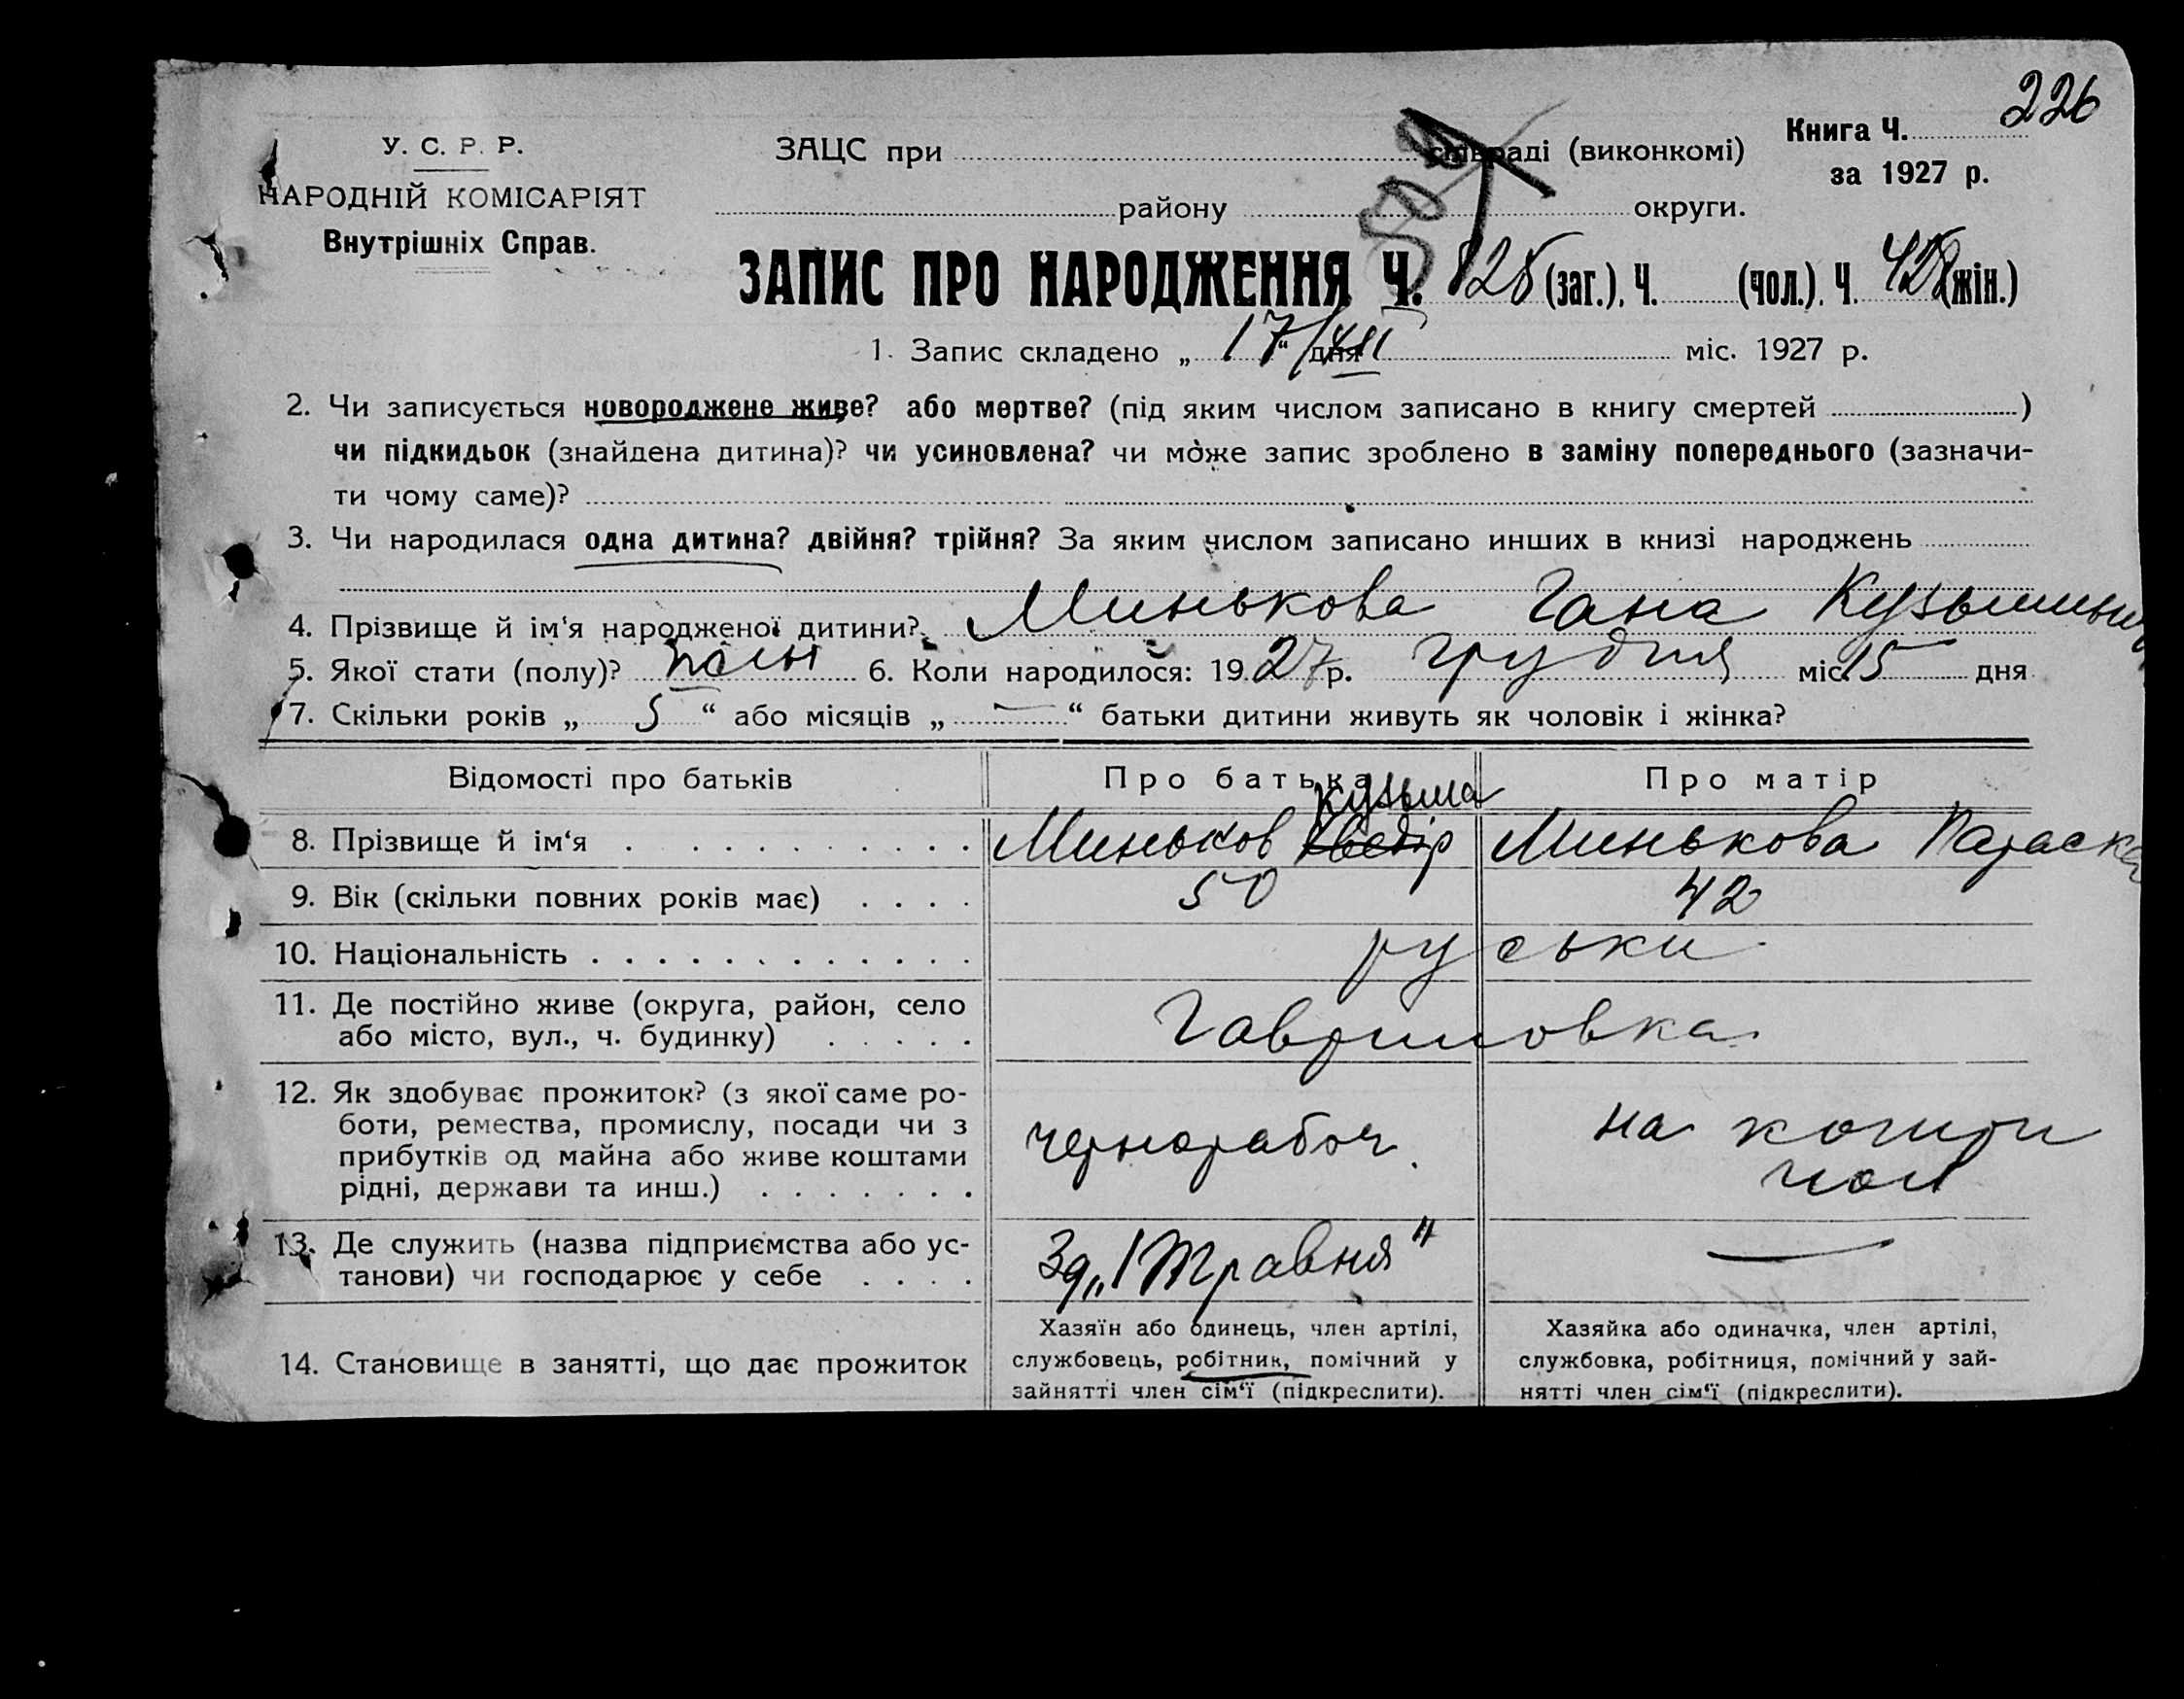 226
У. С. Р. Р.
НАРОДНІЙ КОМІСАРІЯТ
Внутрішніх Справ.
ЗАЦС при сільраді (виконкомі)
району округи.
Книга Ч.
за 1927 р.
509
ЗАПИС ПРО НАРОДЖЕННЯ Ч. 828 (заг.), Ч. (чол.), Ч. 428 (жін.)
1. Запис складено „ 17/XII “ дня міс. 1927 р.
2. Чи записується новороджене живе? або мертве? (під яким числом записано в книгу смертей )
чи підкидьок (знайдена дитина)? чи усиновлена? чи може запис зроблено в заміну попереднього (зазначи-
ти чому саме)?
3. Чи народилася одна дитина? двійня? трійня? За яким числом записано инших в книзі народжень
4. Прізвище й ім'я народженої дитини? Минькова Гана
5. Якої стати (полу)? 6. Коли народилося: 1927 р. Грудня міс. 15 дня
7. Скільки років „ 5 “ або місяців „ — “ батьки дитини живуть як чоловік і жінка?
Відомості про батьків Про батька Про матір
Кузьма
8. Прізвище й ім'я Миньков Хведір Минькова Параска
9. Вік (скільки повних років має) 50 42
10. Національність руськи
11. Де постійно живе (округа, район, село
або місто, вул., ч. будинку) Гавриловка
12. Як здобуває прожиток? (з якої саме ро-
боти, ремества, промислу, посади чи з
прибутків од майна або живе коштами
рідні, держави та инш.)
чернорабоч. на кошти
чол
13. Де служить (назва підприємства або ус-
танови) чи господарює у себе
Зд „1 Травня“ —
14. Становище в занятті, що дає прожиток
Хазяїн або одинець, член артілі,
службовець, робітник, помічний у
зайнятті член сім‘ї (підкреслити).
Хазяйка або одиначка, член артілі,
службовка, робітниця, помічний у зай-
нятті член сім‘ї (підкреслити).